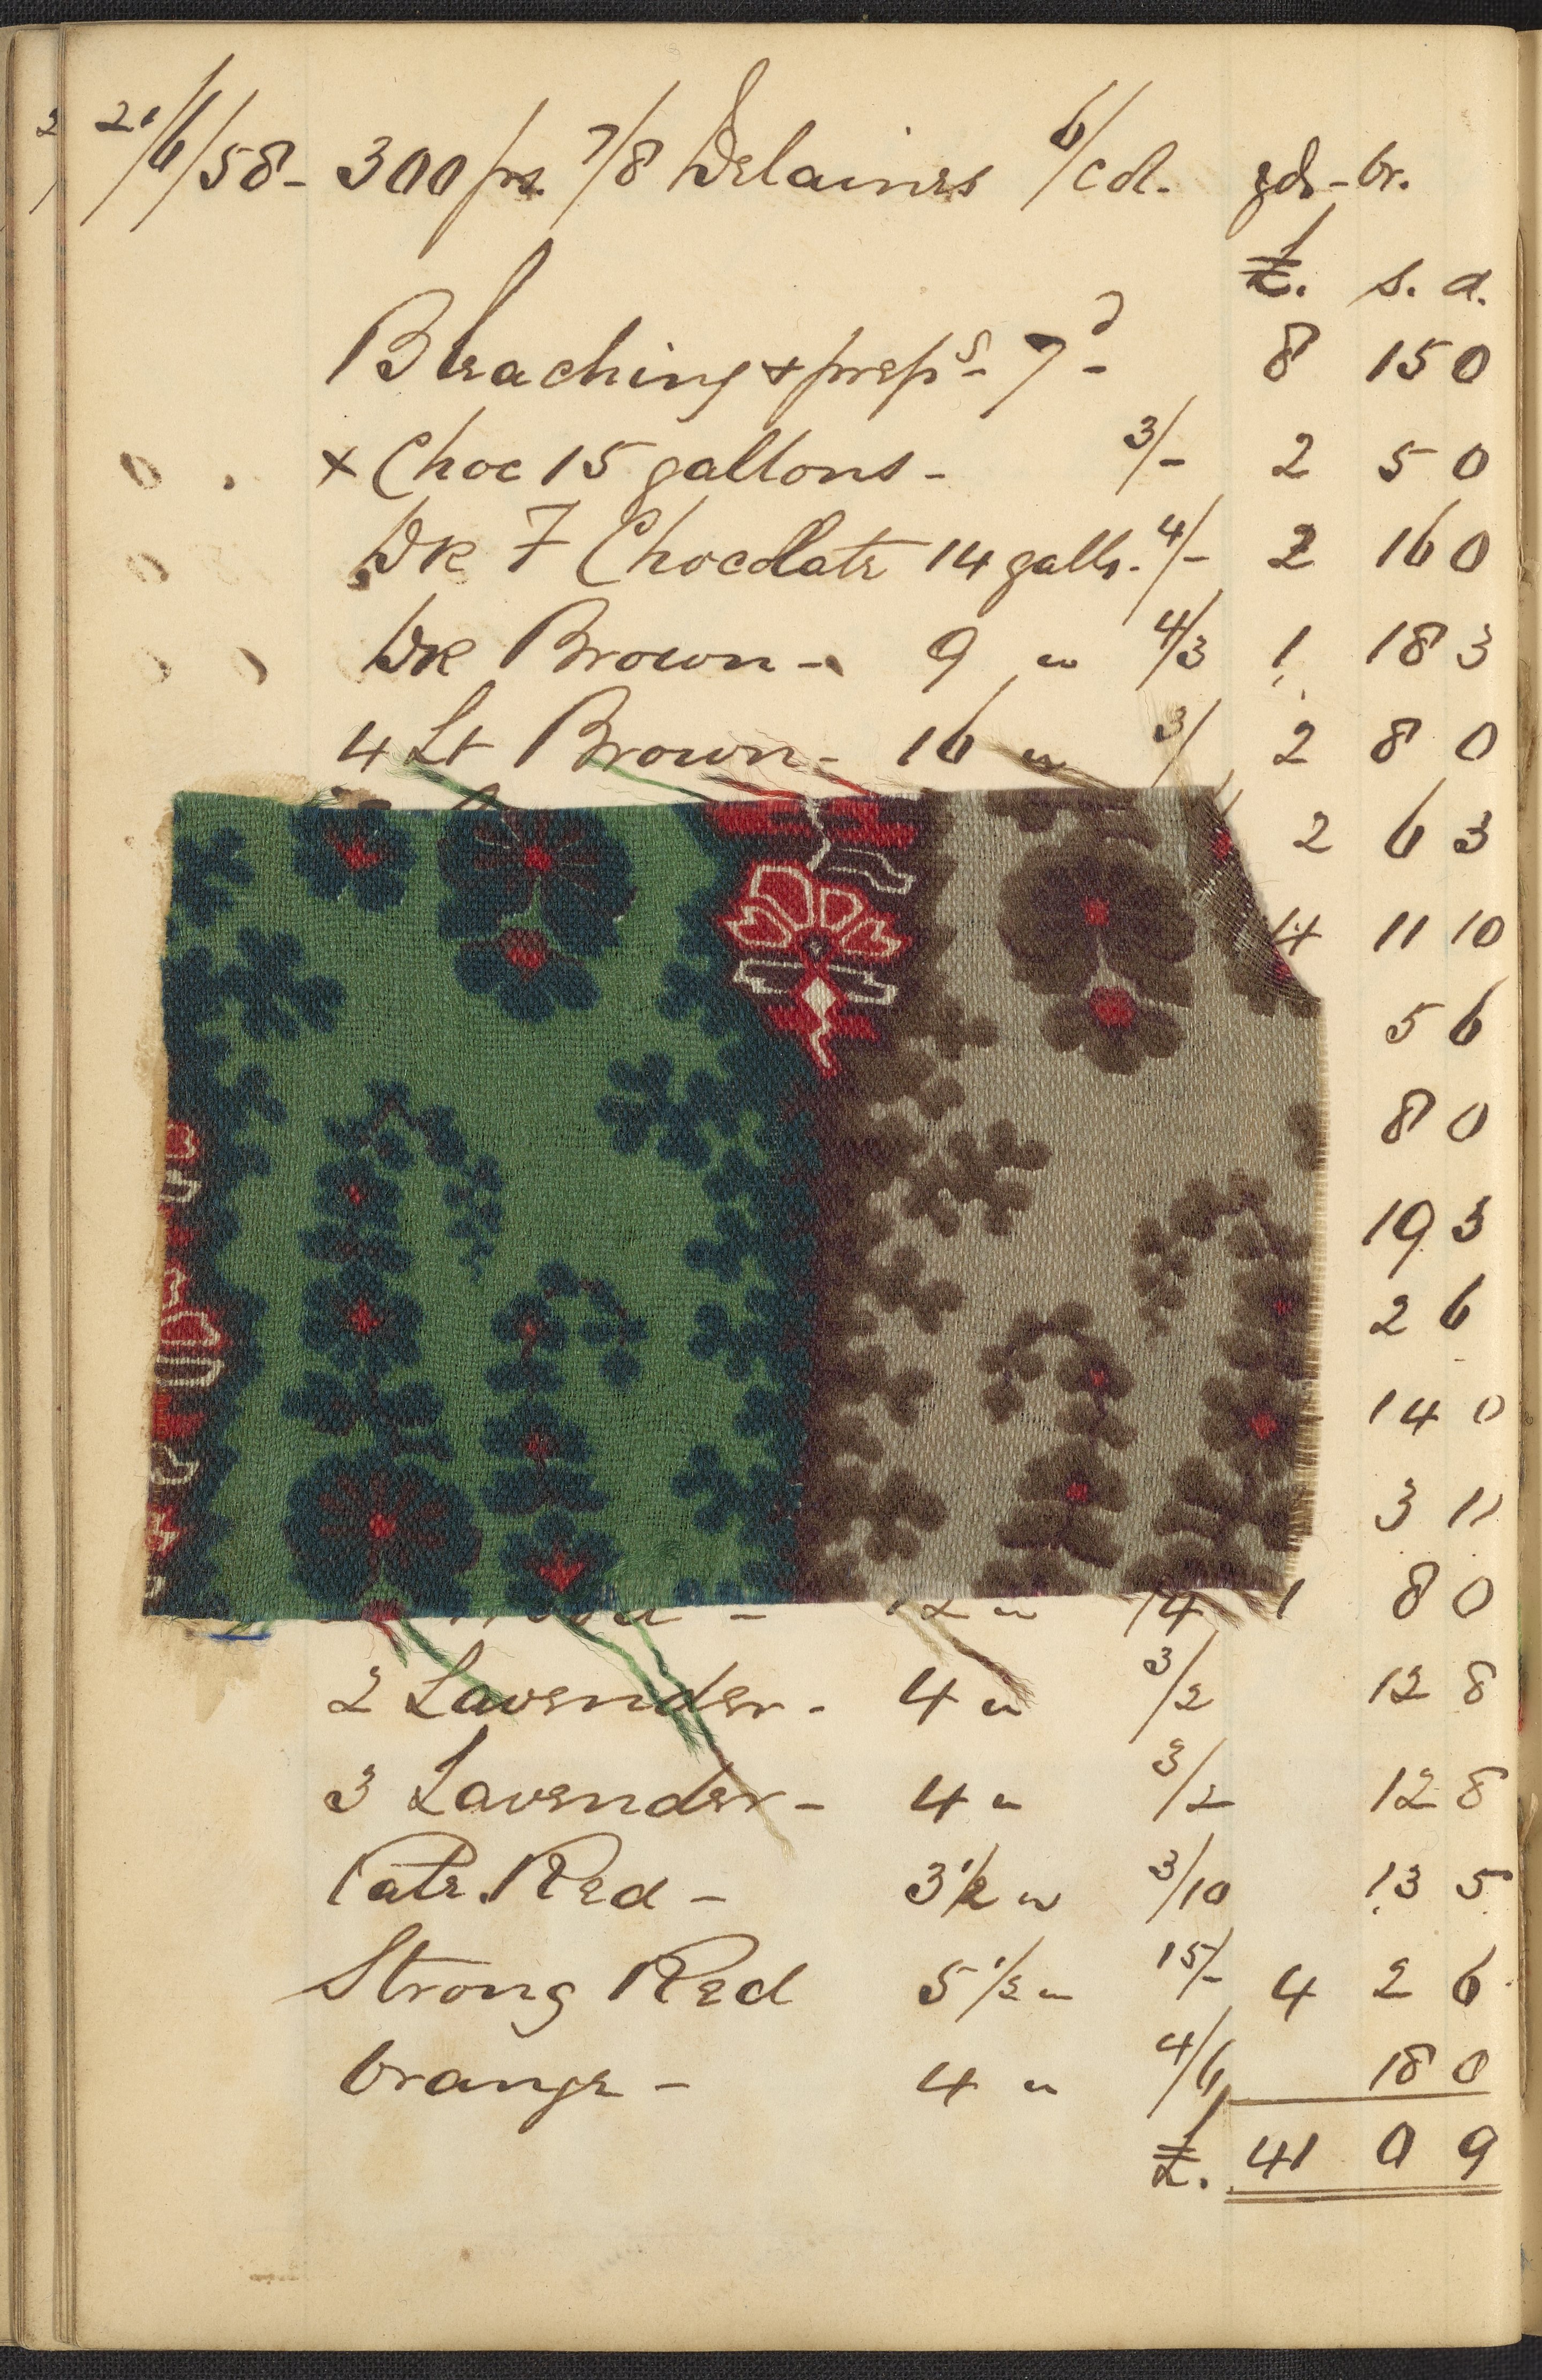 21/6/58 - 300 ps. 7/8 Delaines 6/cd. gds - br.
£. s. d.
Bleaching & preps - 7d - 8 15 0
x Choc 15 gallons - 3/- 2 5 0
Dk 7 Chocolate 14 galls. 4/- 2 16 0
Dk Brown - 9 " 4/3 1 18 3
4 Lt Brown - 16 " 3/ 2 8 0
2 6 3
4 11 10
5 6
8 0
19 3
2 6
14 0
3 11
- 12 " /4 1 8 0
2 Lavender - 4 " 3/2 12 8
3 Lavender - 4 " 3/2 12 8
Pate Red - 3 1/2 " 3/10 13 5
Strong Red 5 1/2 " 15/- 4 2 6
Orange - 4 " 4/6 18 0
£. 41 0 9